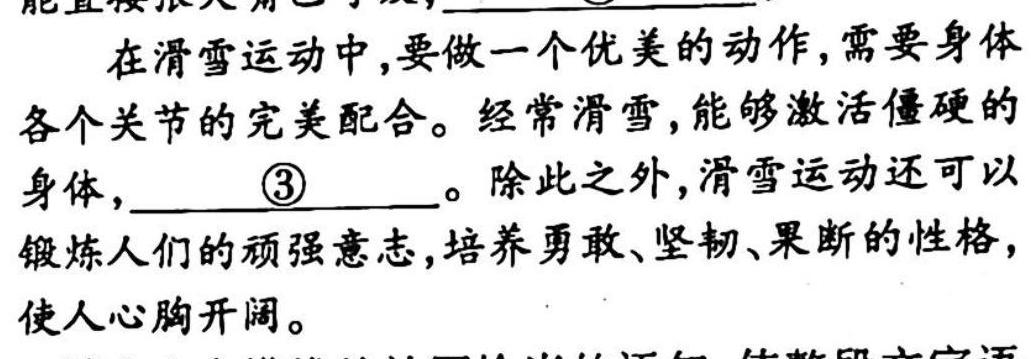 在滑雪运动中,要做一个优美的动作,需要身体
各个关节的完美配合。经常滑雪,能够激活僵硬的
身体,③。除此之外,滑雪运动还可以
锻炼人们的顽强意志,培养勇敢、坚韧、果断的性格,
使人心胸开阔。